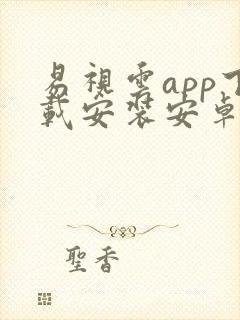 易視雲app下
載安裝安卓
聖香